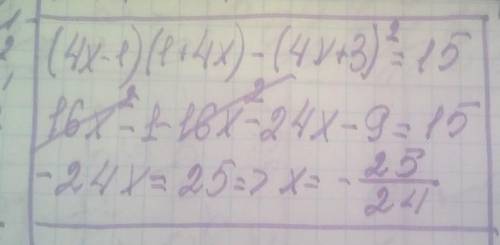 (4x-1)(1+4x)-(4x+3)²=15
16x²-1-16x²-24x-9=15
-24x=25=>x=-25/24